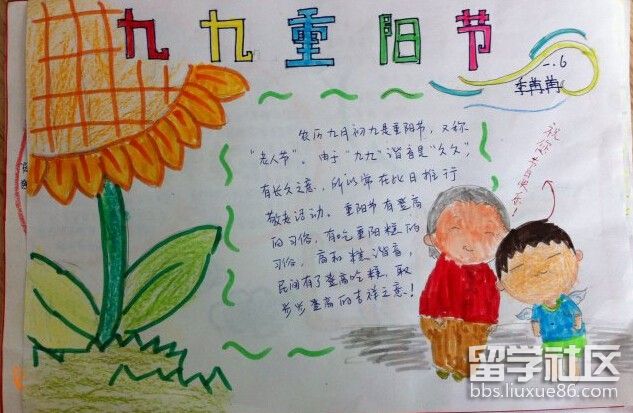 九九重阳节
一.6
祝您节日快乐！
农历九月初九是重阳节，又称
“老人节”。由于“九九”谐音是“久久”，
有长久之意，所以常在此日推行
敬老活动。重阳节有登高
的习俗，有吃重阳糕的
习俗，高和糕谐音，
民间有了登高吃糕，取
步步登高的吉祥之意！
留学社区
bbs.liuxue86.com